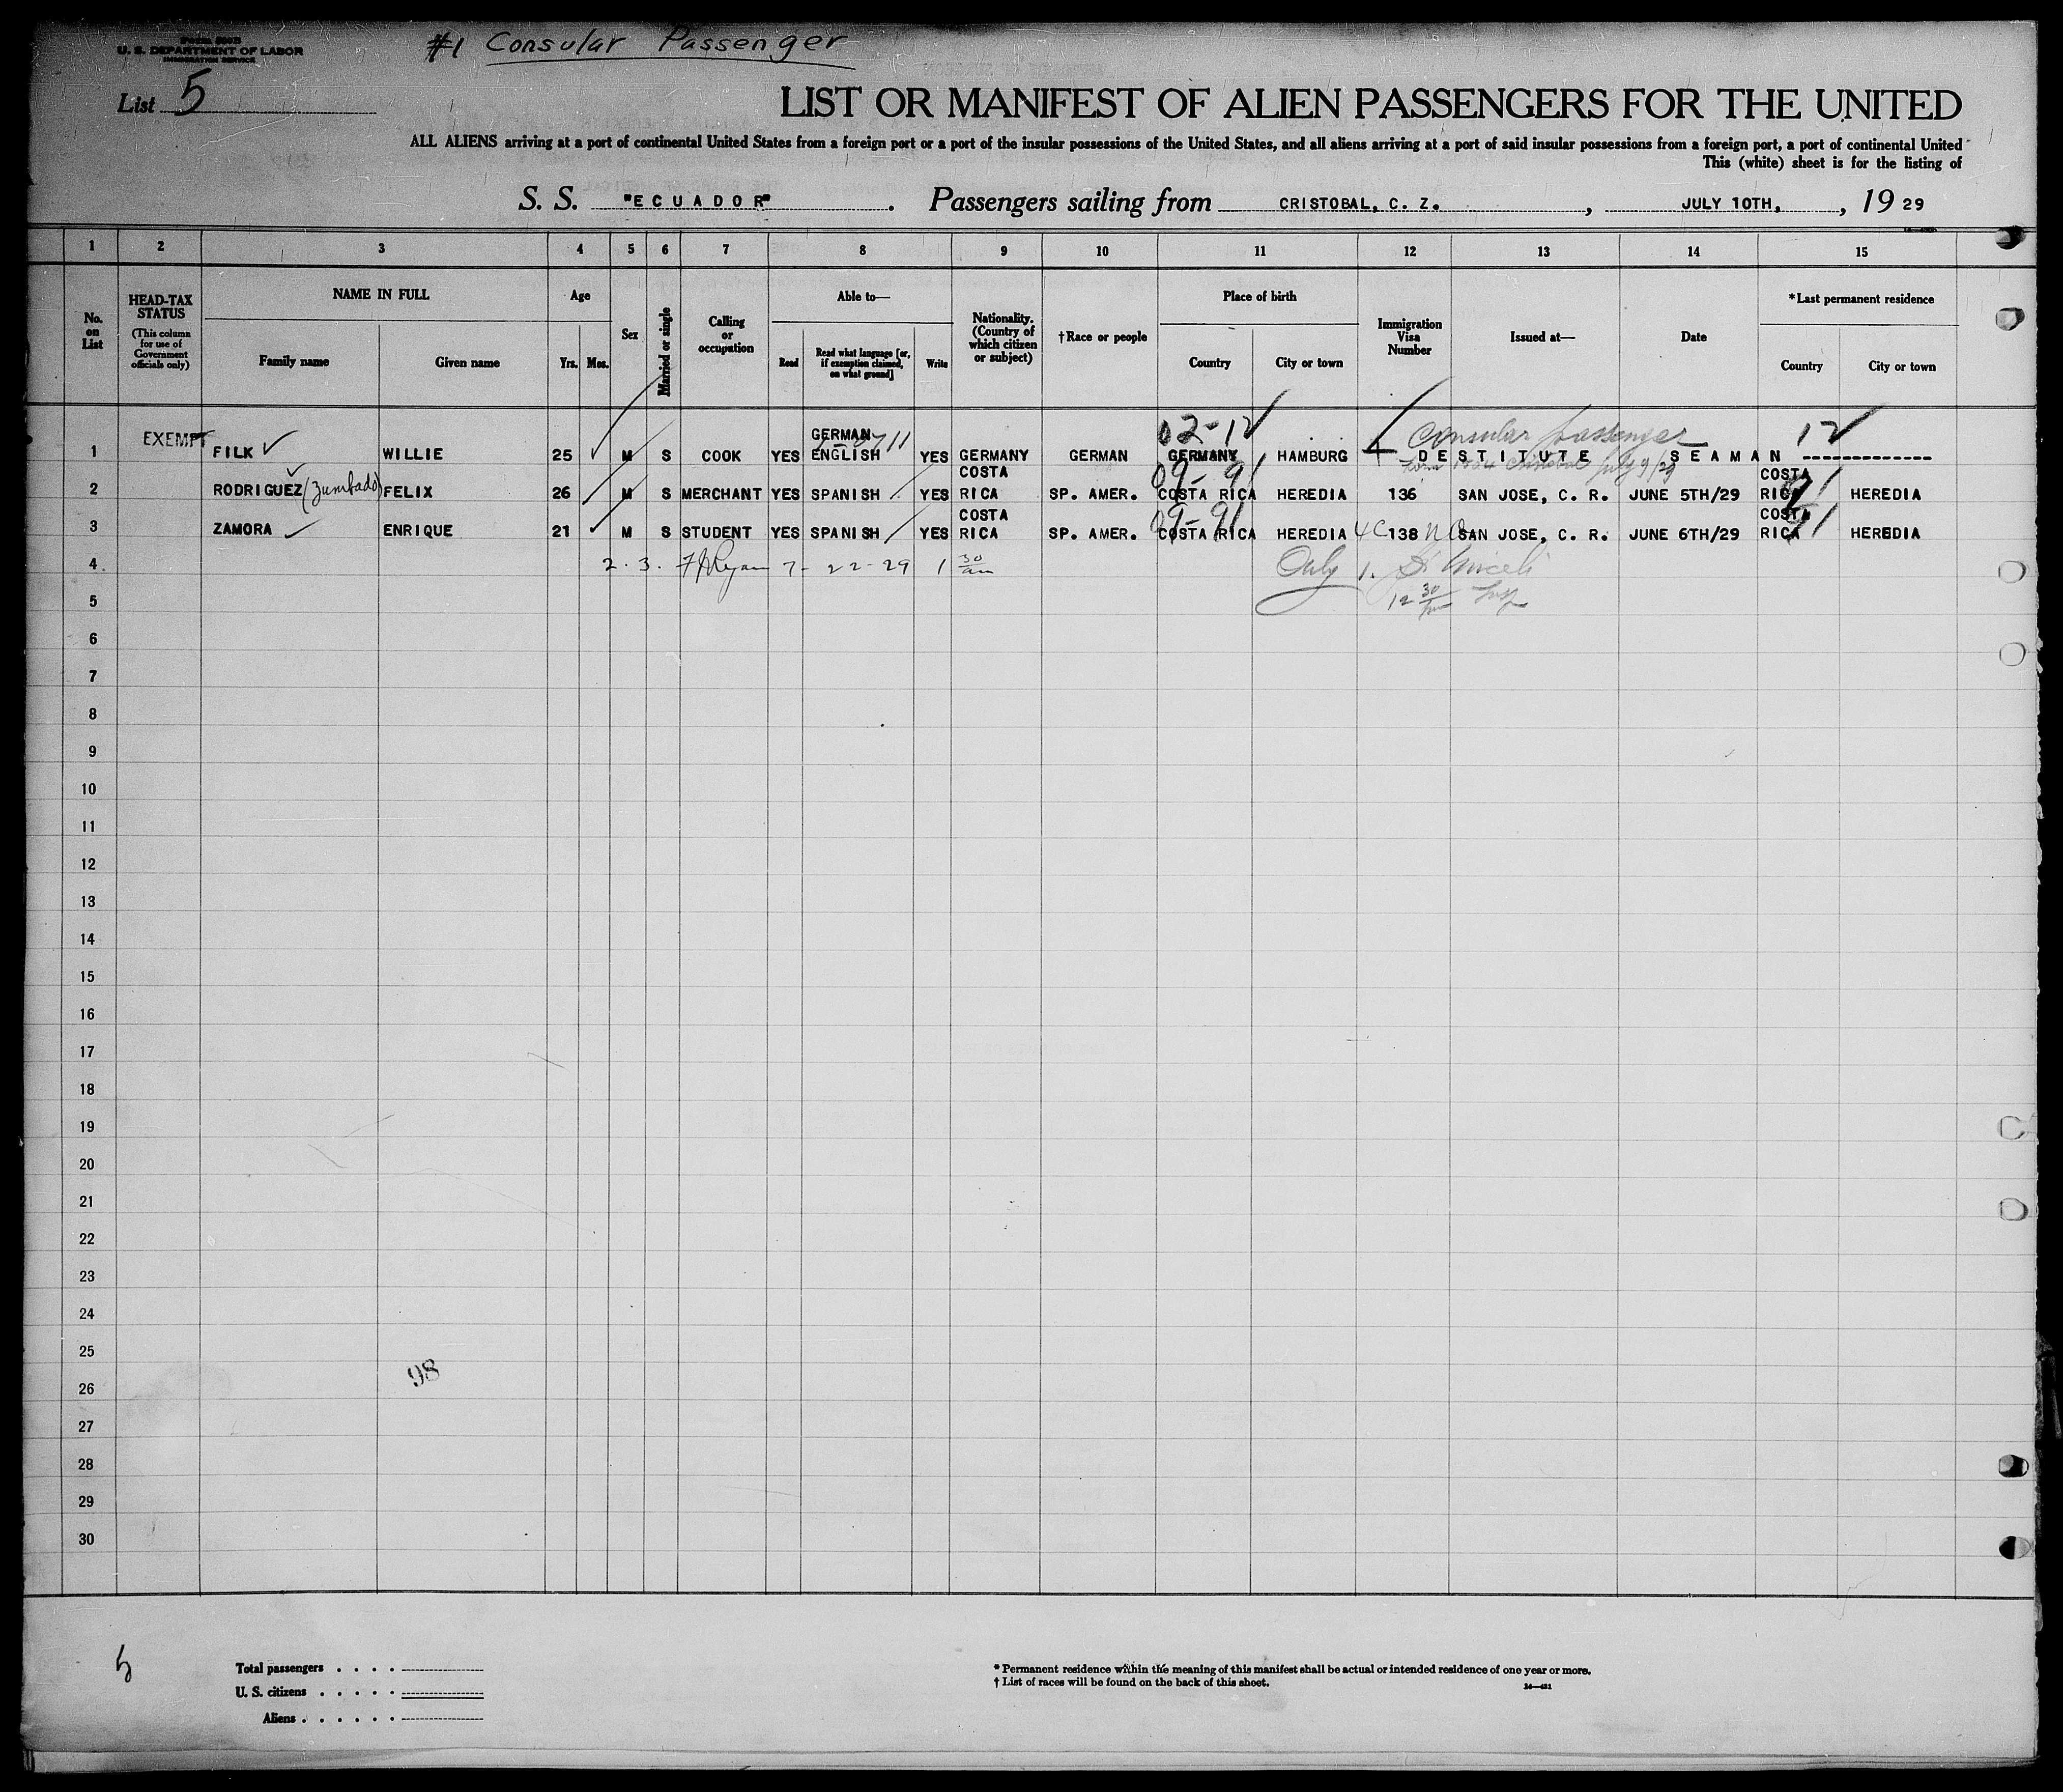 Form 500B
U. S. DEPARTMENT OF LABOR
IMMIGRATION SERVICE
#1 Consular Passenger
List 5
LIST OR MANIFEST OF ALIEN PASSENGERS FOR THE UNITED
ALL ALIENS arriving at a port of continental United States from a foreign port or a port of the insular possessions of the United States, and all aliens arriving at a port of said insular possessions from a foreign port, a port of continental United
This (white) sheet is for the listing of
S. S. "ECUADOR". Passengers sailing from CRISTOBAL, C. Z., JULY 10TH, , 19 29
1 2 3 4 5 6 7 8 9 10 11 12 13 14 15
No. on List
HEAD-TAX STATUS (This column for use of Government officials only)
NAME IN FULL
Family name Given name
Age
Yrs. Mos.
Sex
Married or single
Calling or occupation
Able to—
Read Read what language [or, if exemption claimed, on what ground] Write
Nationality. (Country of which citizen or subject)
†Race or people
Place of birth
Country City or town
Immigration Visa Number
Issued at—
Date
*Last permanent residence
Country City or town
02-12 Consular passenger 12
1 EXEMPT FILK WILLIE 25 M S COOK YES GERMAN ENGLISH YES GERMANY GERMAN GERMANY HAMBURG DESTITUTE SEAMAN
Cristobal July 9/29
09-91 91
2 RODRIGUEZ (Zumbado) FELIX 26 M S MERCHANT YES SPANISH YES COSTA RICA SP. AMER. COSTA RICA HEREDIA 136 SAN JOSE, C. R. JUNE 5TH/29 COSTA RICA HEREDIA
09-91 91
3 ZAMORA ENRIQUE 21 M S STUDENT YES SPANISH YES COSTA RICA SP. AMER. COSTA RICA HEREDIA 4C 138 NO SAN JOSE, C. R. JUNE 6TH/29 COSTA RICA HEREDIA
4 2. 3. 7-22-29 1 30 am Only 1.
5 12 30
6
7
8
9
10
11
12
13
14
15
16
17
18
19
20
21
22
23
24
25
98
26
27
28
29
30
5
Total passengers . . . .
U. S. citizens . . . . .
Aliens . . . . . .
* Permanent residence within the meaning of this manifest shall be actual or intended residence of one year or more.
† List of races will be found on the back of this sheet.